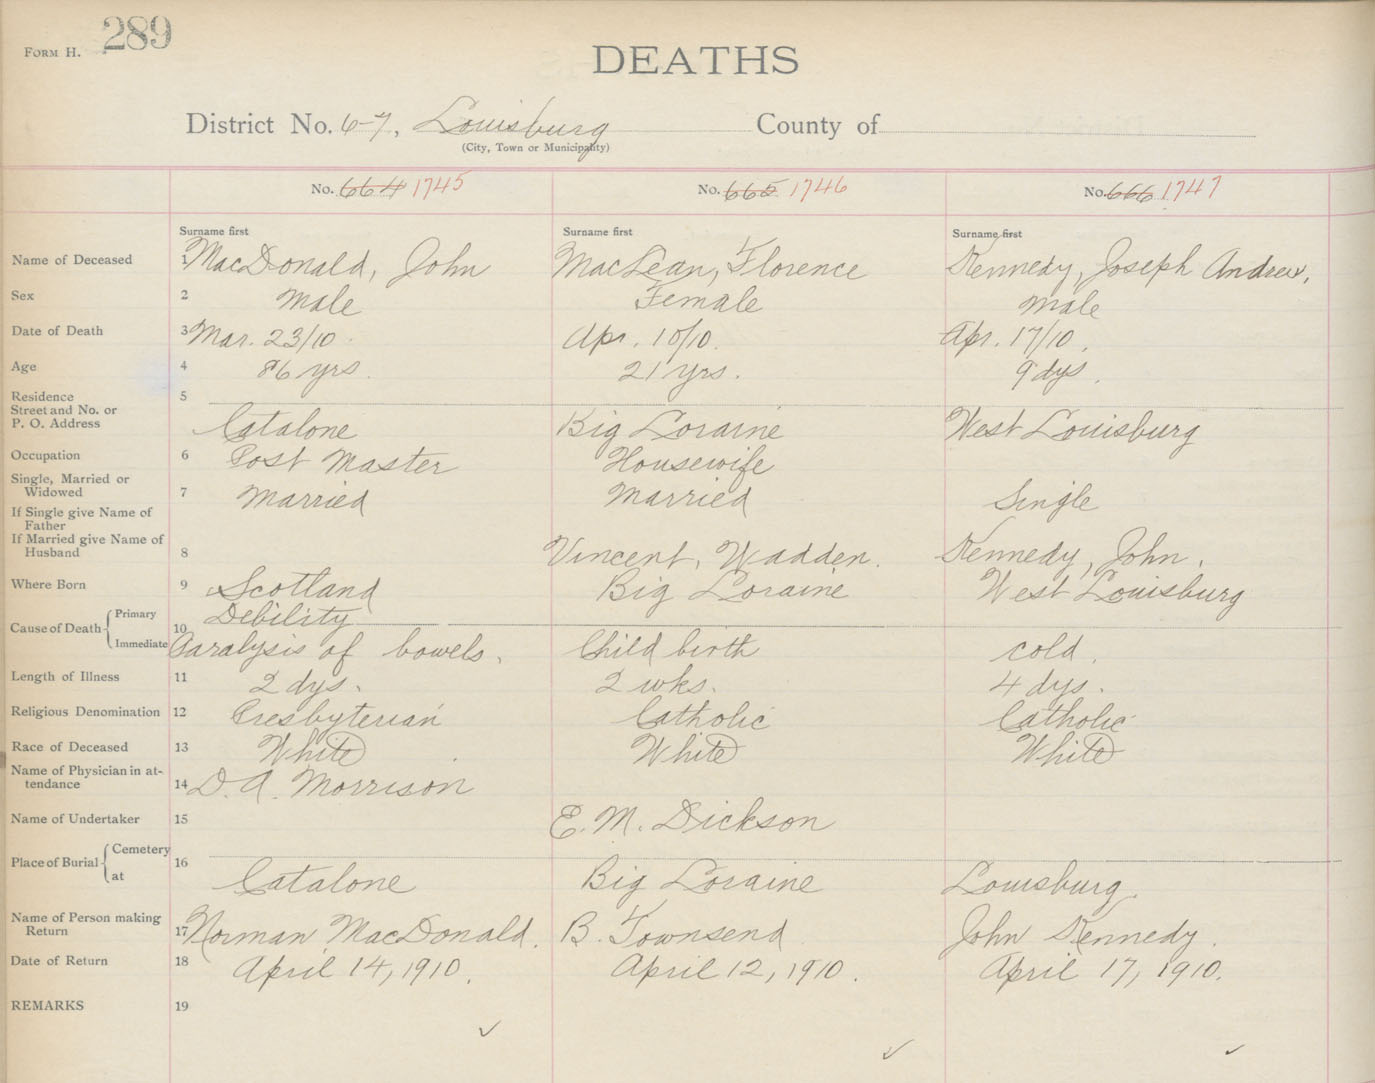 FORM H. 289
DEATHS
District No. 6-7, Louisburg County of
(City, Town or Municipality)
No. 664 1745 No. 665 1746 No. 666 1747
Surname first Surname first Surname first
Name of Deceased 1 MacDonald, John MacLean, Florence Kennedy, Joseph Andrew,
Sex 2 Male Female male
Date of Death 3 Mar. 23/10. Apr. 10/10. Apr. 17/10.
Age 4 86 yrs. 21 yrs. 9 dys.
Residence 5
Street and No. or
P. O. Address Catalone Big Loraine West Louisburg
Occupation 6 Post Master Housewife
Single, Married or
Widowed 7 Married Married Single
If Single give Name of
Father
If Married give Name of
Husband 8 Vincent, Wadden. Kennedy, John.
Where Born 9 Scotland Big Loraine West Louisburg
Cause of Death Primary 10 Debility
Immediate Paralysis of bowels. Child birth cold.
Length of Illness 11 2 dys. 2 wks. 4 dys.
Religious Denomination 12 Presbyterian Catholic Catholic
Race of Deceased 13 White White White
Name of Physician in at-
tendance 14 D. A. Morrison
Name of Undertaker 15 E. M. Dickson
Place of Burial Cemetery 16
at Catalone Big Loraine Louisburg.
Name of Person making
Return 17 Norman MacDonald. B. Townsend John Kennedy.
Date of Return 18 April 14, 1910. April 12, 1910. April 17, 1910.
REMARKS 19